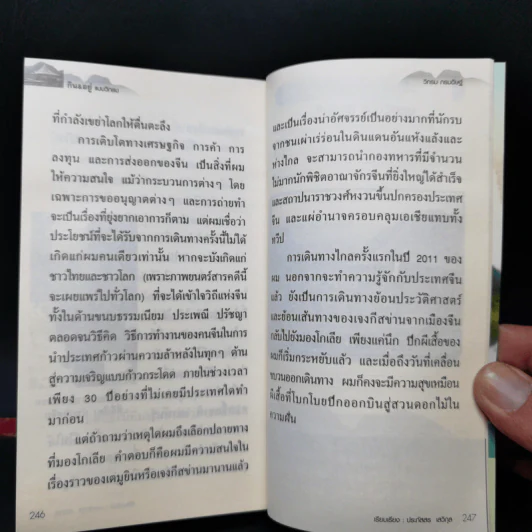 กินแอนด์อยู่ แบบวิกรม
ที่กำลังเขย่าโลกให้ตื่นตะลึง
การเติบโตทางเศรษฐกิจ การค้า การ
ลงทุน และการส่งออกของจีน เป็นสิ่งที่ผม
ให้ความสนใจ แม้ว่ากระบวนการต่างๆ โดย
เฉพาะการขออนุญาตต่างๆ และการถ่ายทำ
จะเป็นเรื่องที่ยุ่งยากเอาการก็ตาม แต่ผมเชื่อว่า
ประโยชน์ที่จะได้รับจากการเดินทางครั้งนี้ไม่ได้
เกิดแก่ผมคนเดียวเท่านั้น หากจะบังเกิดแก่
ชาวไทยและชาวโลก (เพราะภาพยนตร์สารคดีนี้
จะเผยแพร่ไปทั่วโลก) ที่จะได้เข้าใจวิถีแห่งจีน
ทั้งในด้านขนบธรรมเนียม ประเพณี ปรัชญา
ตลอดจนวิธีคิด วิธีการทำงานของคนจีนในการ
นำประเทศก้าวผ่านความล้าหลังในทุกๆ ด้าน
สู่ความเจริญแบบก้าวกระโดด ภายในช่วงเวลา
เพียง 30 ปีอย่างที่ไม่เคยมีประเทศใดทำ
มาก่อน
แต่ถ้าถามว่าเหตุใดผมถึงเลือกปลายทาง
ที่มองโกเลีย คำตอบก็คือผมมีความสนใจใน
เรื่องราวของเตมูยินหรือเจงกีสข่านมานานแล้ว
246
วิกรม กรมดิษฐ์
และเป็นเรื่องน่าอัศจรรย์เป็นอย่างมากที่นักรบ
จากชนเผ่าเร่ร่อนในดินแดนอันแห้งแล้งและ
ห่างไกล จะสามารถนำกองทหารที่มีจำนวน
ไม่มากนักพิชิตอาณาจักรจีนที่ยิ่งใหญ่ได้สำเร็จ
และสถาปนาราชวงศ์หงวนขึ้นปกครองประเทศ
จีน และแผ่อำนาจครอบคลุมเอเชียแทบทั้ง
ทวีป
การเดินทางไกลครั้งแรกในปี 2011 ของ
ผม นอกจากจะทำความรู้จักกับประเทศจีน
แล้ว ยังเป็นการเดินทางย้อนประวัติศาสตร์
และย้อนเส้นทางของเจงกีสข่านจากเมืองจีน
กลับไปยังมองโกเลีย เพียงแค่นึก ปีกผีเสื้อของ
ผมก็เริ่มกระหยับแล้ว และเมื่อถึงวันที่เคลื่อน
ขบวนออกเดินทาง ผมก็คงจะมีความสุขเหมือน
ผีเสื้อที่โบกโบยปีกออกบินสู่สวนดอกไม้ใน
ความฝัน
เรียบเรียง : ประภัสสร เสวิกุล 247